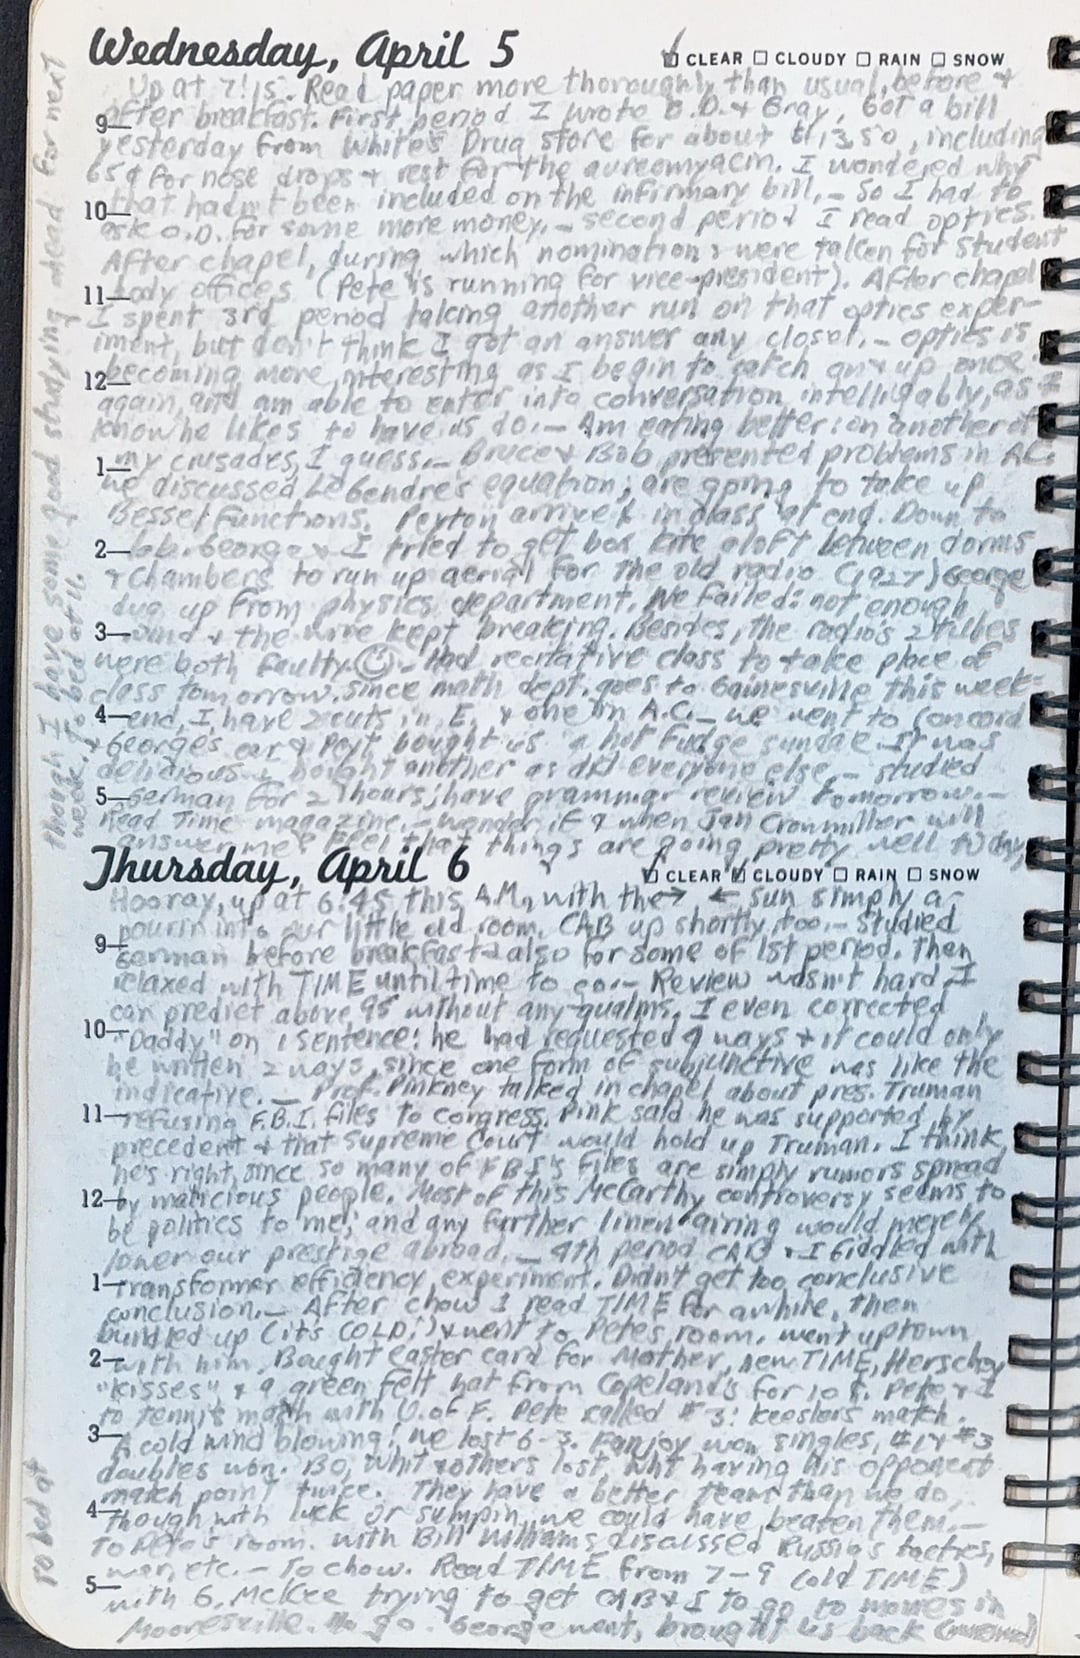 Wednesday, April 5
CLEAR CLOUDY RAIN SNOW
Up at 7:15. Read paper more thoroughly than usual, before +
after breakfast. First period I wrote O.D. + Gray, Got a bill
9
yesterday from White's Drug store for about $13.50, including
65¢ for nose drops + rest for the aureomyacin. I wondered why
that hadn't been included on the infirmary bill. — So I had to
10
ask O.D. for some more money. — second period I read optics.
After chapel, during which nominations were taken for Student
body offices (Pete is running for vice-president). After chapel
11
I spent 3rd period taking another run on that optics exper-
iment, but don't think I got an answer any closer. — optics is
becoming more interesting as I begin to catch up once
12
again, and am able to enter into conversation intelligably, as I
know he likes to have us do. — Am eating better: on another of
my crusades, I guess. — Bruce + Bob presented problems in A.C.
1
we discussed LeGendre's equation; are going to take up
Bessel Functions. Peyton arrived in class at end. Down to
lab. George + I tried to get box kite aloft between dorms
2
+ Chambers to run up aerial for the old radio (1927) George
dug up from physics department. We failed: not enough
wind + the wire kept breaking. Besides, the radio's 2 tubes
3
were both faulty. — Had recitative class to take place of
class tomorrow. Since math dept. goes to Gainesville this week-
end, I have 2 cuts in E. + one in A.C. — we went to Concord
4
+ George's car + Peyt bought us a hot fudge sundae. It was
delicious. I bought another as did everyone else. — studied
German for 2 hours; have grammar review tomorrow. —
5
Read Time magazine. — wonder if + when Jan Cronmiller will
answer me? Feel that things are going pretty well today,
though I have some good studying ahead for next
week. To bed at 11.
Thursday, April 6
CLEAR CLOUDY RAIN SNOW
Hooray, up at 6:45 this A.M., with the → ← sun simply a-
pourin into our little old room. CAB up shortly, too. — studied
9
German before breakfast + also for some of 1st period. Then
relaxed with TIME until time to go. — Review wasn't hard. I
can predict above 95 without any qualms. I even corrected
10
"Daddy" on 1 sentence: he had requested 4 ways + it could only
be written 2 ways, since one form of subjunctive was like the
indicative. — Prof. Pinkney talked in chapel about pres. Truman
11
refusing F.B.I. files to congress. Pink said he was supported by
precedent + that Supreme Court would hold up Truman. I think
he's right, since so many of FBI's files are simply rumors spread
12
by malicious people. Most of this McCarthy controversy seems to
be politics to me; and any further linen airing would merely
lower our prestige abroad. — 4th period CAB + I fiddled with
1
transformer efficiency experiment. Didn't get too conclusive
conclusion. — After chow I read TIME for awhile, then
bundled up (it's COLD!) + went to Pete's room. went uptown
2
with him. Bought Easter card for Mother, new TIME, Hershey
"kisses" + a green felt hat from Copeland's for 10¢. Pete + I
to tennis match with U. of F. Pete called #3: Keesler's match.
3
A cold wind blowing! We lost 6-3. Fanjoy won singles, #1 + #3
doubles won. Bo, Whit + others lost, Whit having his opponent
match point twice. They have a better team than we do,
4
though with luck or sumpin, we could have beaten them. —
To Pete's room. With Bill Williams discussed Russia's tactics,
war, etc. — To chow. Read TIME from 7-9 (old TIME)
5
with G. McKee trying to get CAB + I to go to movies in
Mooresville. No go. George went, brought us back
To bed at